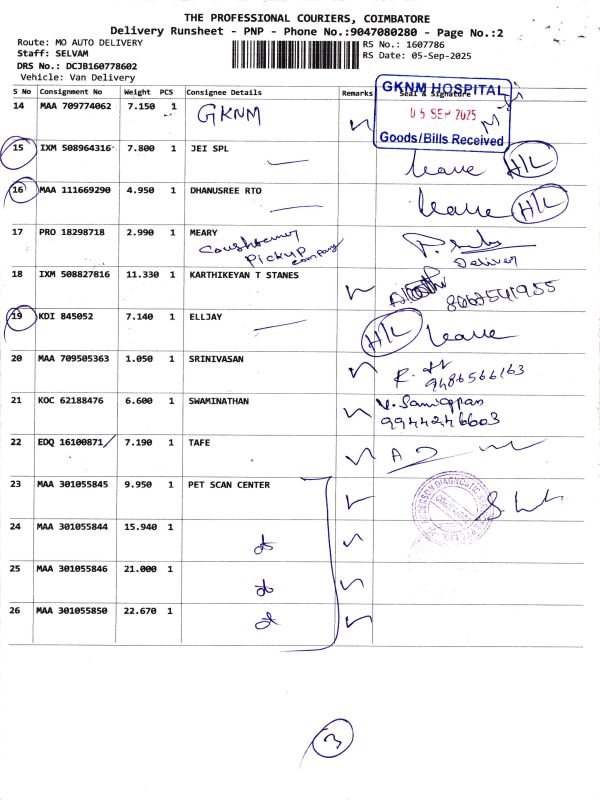 THE PROFESSIONAL COURIERS, COIMBATORE
Delivery Runsheet - PNP - Phone No.:9047080280 - Page No.:2
Route: MO AUTO DELIVERY
RS No.: 1607786
Staff: SELVAM
RS Date: 05-Sep-2025
DRS No.: DCJB160778602
Vehicle: Van Delivery
S No Consignment No Weight PCS Consignee Details Remarks Seal & Signature
14 MAA 709774062 7.150 1 GKNM
GKNM HOSPITAL
05 SEP 2025
Goods/Bills Received
15 IXM 508964316 7.800 1 JEI SPL leave H/L
16 MAA 111669290 4.950 1 DHANUSREE RTO leave H/L
17 PRO 18298718 2.990 1 MEARY
Pickup company
Deliver
18 IXM 508827816 11.330 1 KARTHIKEYAN T STANES
19 KDI 845052 7.140 1 ELLJAY H/L leave
20 MAA 709505363 1.050 1 SRINIVASAN
9486566163
21 KOC 62188476 6.600 1 SWAMINATHAN V. Samiappan
9944246603
22 EDQ 16100871 7.190 1 TAFE
23 MAA 301055845 9.950 1 PET SCAN CENTER
24 MAA 301055844 15.940 1
25 MAA 301055846 21.000 1
26 MAA 301055850 22.670 1
3